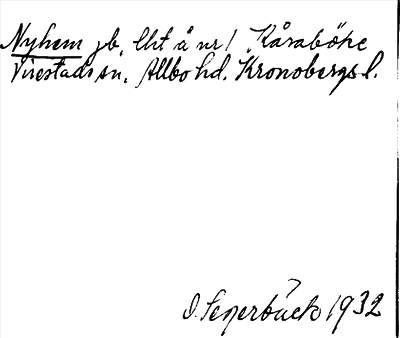 Nyhem jb, lht å nr 1 Kåraböke
Virestads sn, Allbo hd. Kronobergs l.
1932